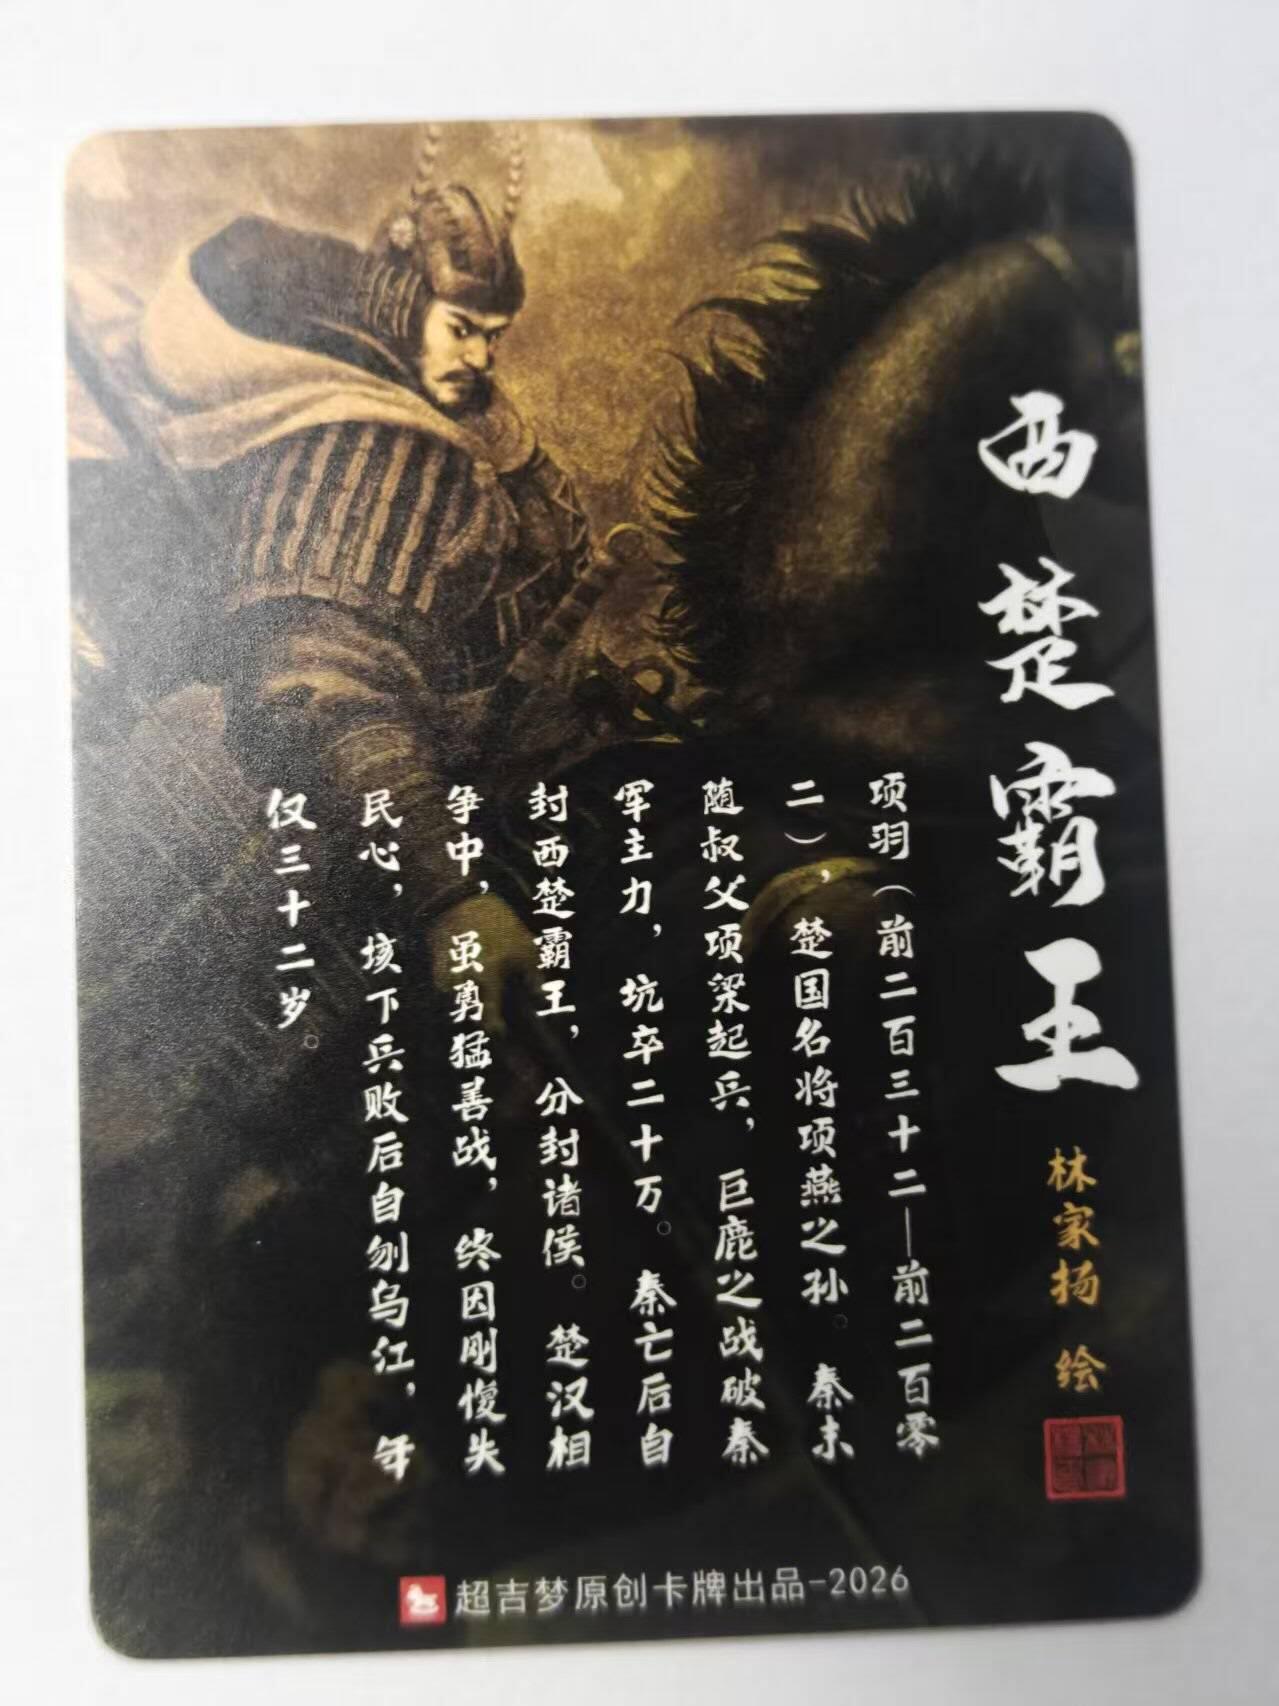 西楚霸王
林家扬 绘
项羽（前二百三十二—前二百零
二），楚国名将项燕之孙。秦末
随叔父项梁起兵，巨鹿之战破秦
军主力，坑卒二十万。秦亡后自
封西楚霸王，分封诸侯。楚汉相
争中，虽勇猛善战，终因刚愎失
民心，垓下兵败后自刎乌江，年
仅三十二岁。
超吉梦原创卡牌出品-2026